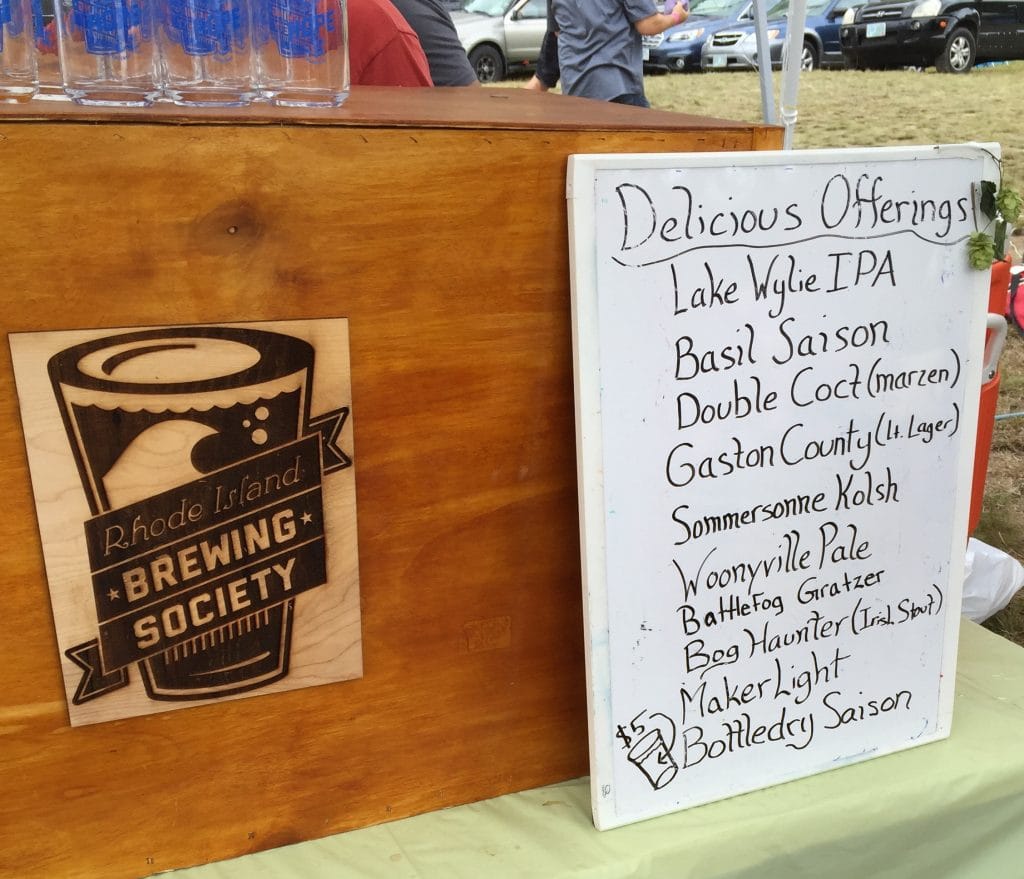 Delicious Offerings
Lake Wylie IPA
Basil Saison
Double Coct (marzen)
Gaston County (Lt. Lager)
Sommersonne Kolsh
Woonyville Pale
BattleFog Gratzer
Bog Haunter (Irish Stout)
Maker Light
Bottledry Saison
$5
Rhode Island
BREWING
SOCIETY